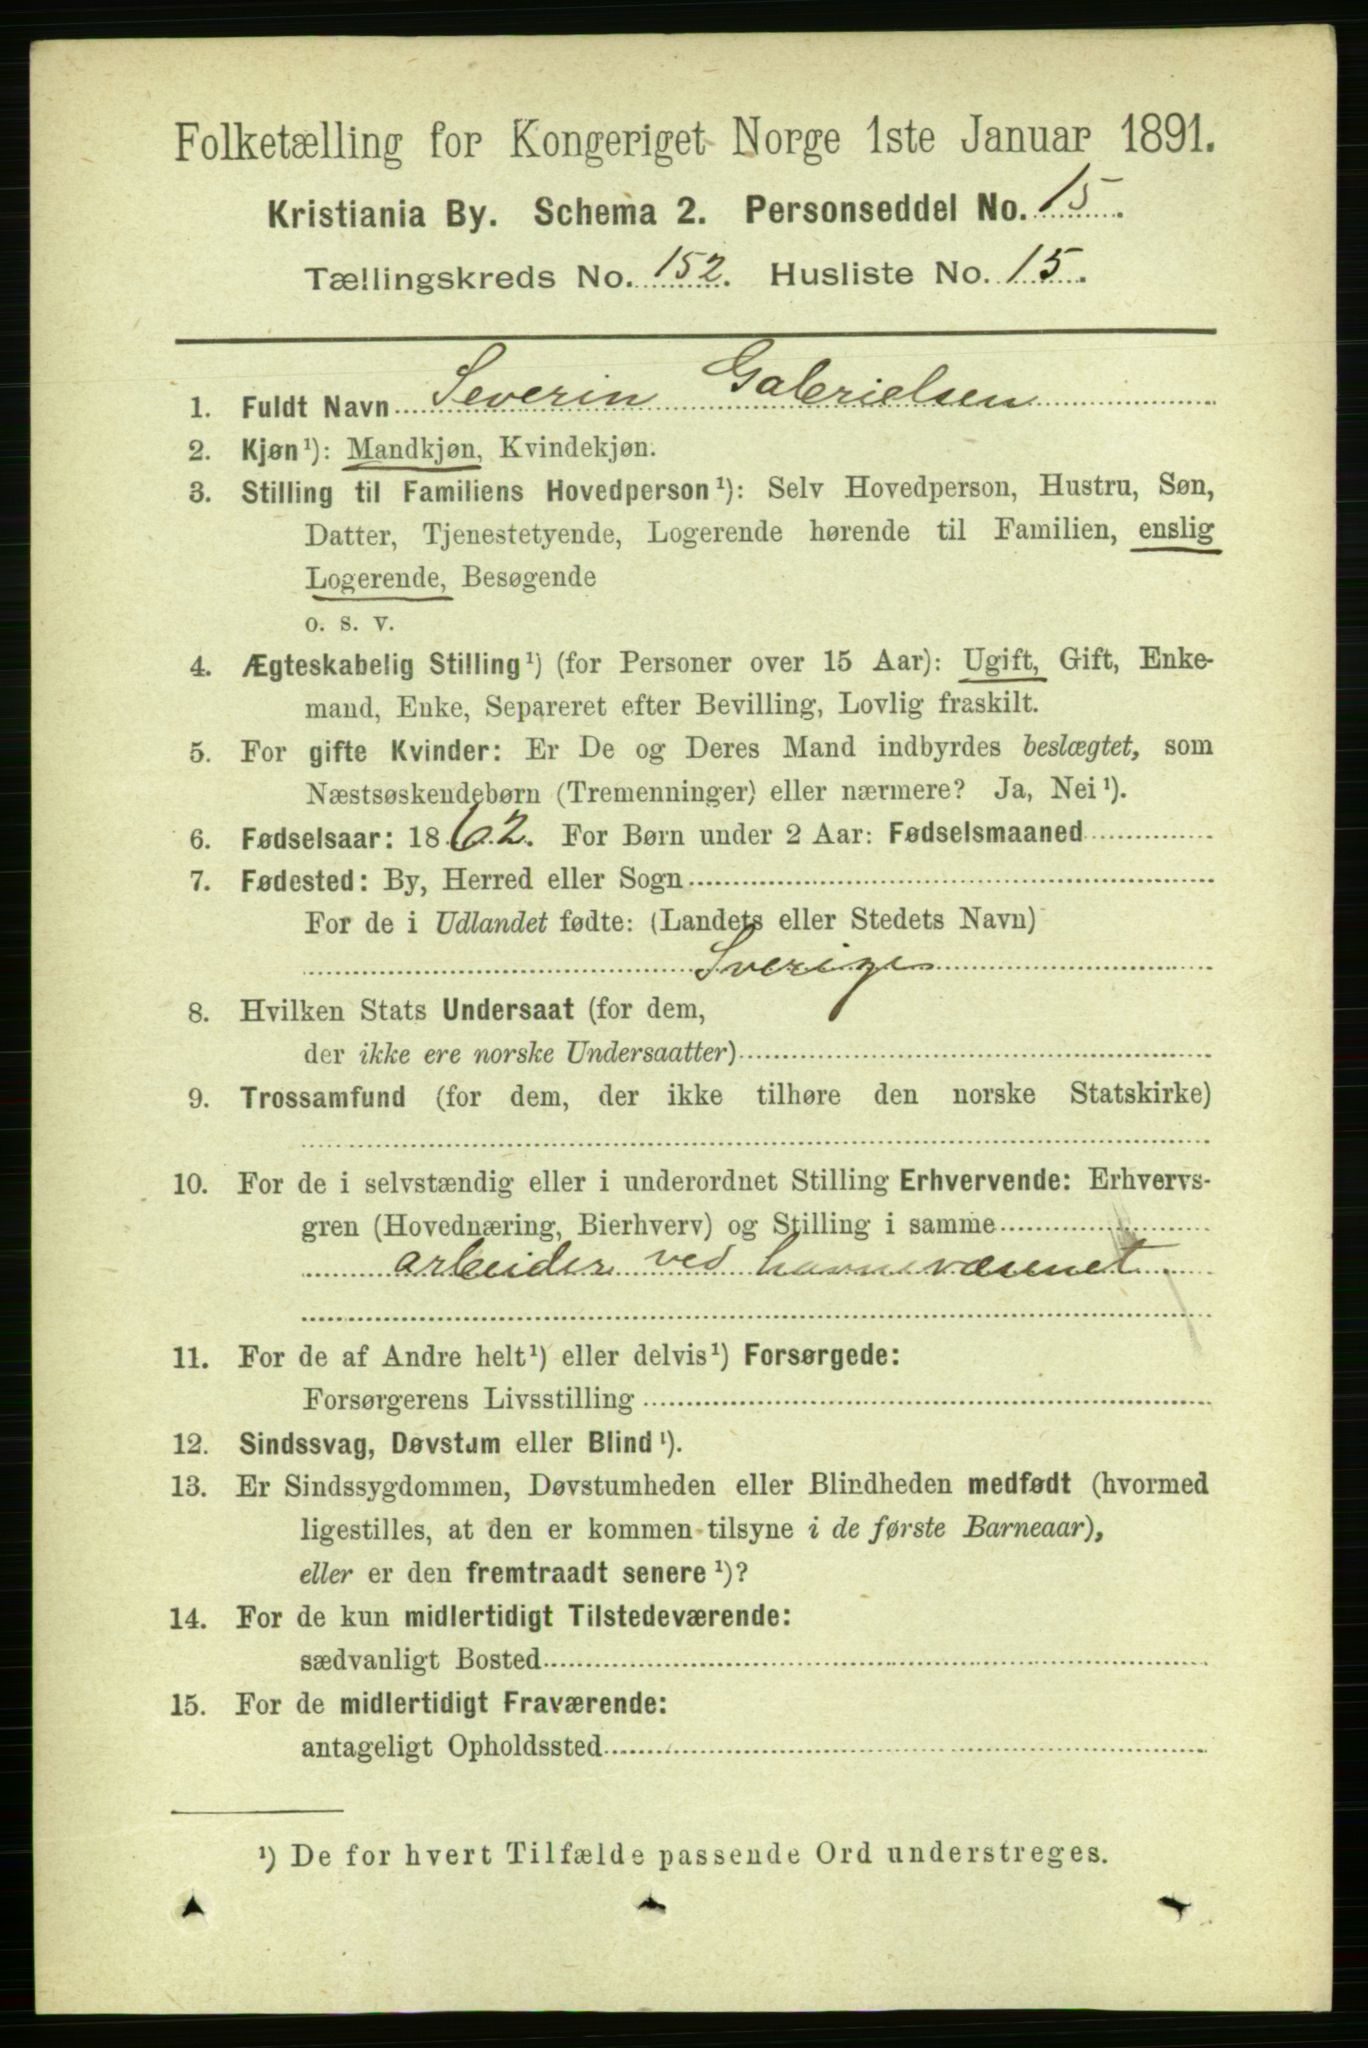 Folketælling for Kongeriget Norge 1ste Januar 1891.
Kristiania By. Schema 2. Personseddel No. 15.
Tællingskreds No. 152. Husliste No. 15.
1. Fuldt Navn Severin Gabrielsen
2. Kjøn¹): Mandkjøn, Kvindekjøn.
3. Stilling til Familiens Hovedperson¹): Selv Hovedperson, Hustru, Søn,
Datter, Tjenestetyende, Logerende hørende til Familien, enslig
Logerende, Besøgende
o. s. v.
4. Ægteskabelig Stilling¹) (for Personer over 15 Aar): Ugift, Gift, Enke-
mand, Enke, Separeret efter Bevilling, Lovlig fraskilt.
5. For gifte Kvinder: Er De og Deres Mand indbyrdes beslægtet, som
Næstsøskendebørn (Tremenninger) eller nærmere? Ja, Nei¹).
6. Fødselsaar: 1862. For Børn under 2 Aar: Fødselsmaaned
7. Fødested: By, Herred eller Sogn
For de i Udlandet fødte: (Landets eller Stedets Navn)
Sverige
8. Hvilken Stats Undersaat (for dem,
der ikke ere norske Undersaatter)
9. Trossamfund (for dem, der ikke tilhøre den norske Statskirke)
10. For de i selvstændig eller i underordnet Stilling Erhvervende: Erhvervs-
gren (Hovednæring, Bierhverv) og Stilling i samme
arbeider ved havnevæsenet.
11. For de af Andre helt¹) eller delvis¹) Forsørgede:
Forsørgerens Livsstilling
12. Sindssvag, Døvstum eller Blind¹).
13. Er Sindssygdommen, Døvstumheden eller Blindheden medfødt (hvormed
ligestilles, at den er kommen tilsyne i de første Barneaar),
eller er den fremtraadt senere¹)?
14. For de kun midlertidigt Tilstedeværende:
sædvanligt Bosted
15. For de midlertidigt Fraværende:
antageligt Opholdssted
¹) De for hvert Tilfælde passende Ord understreges.